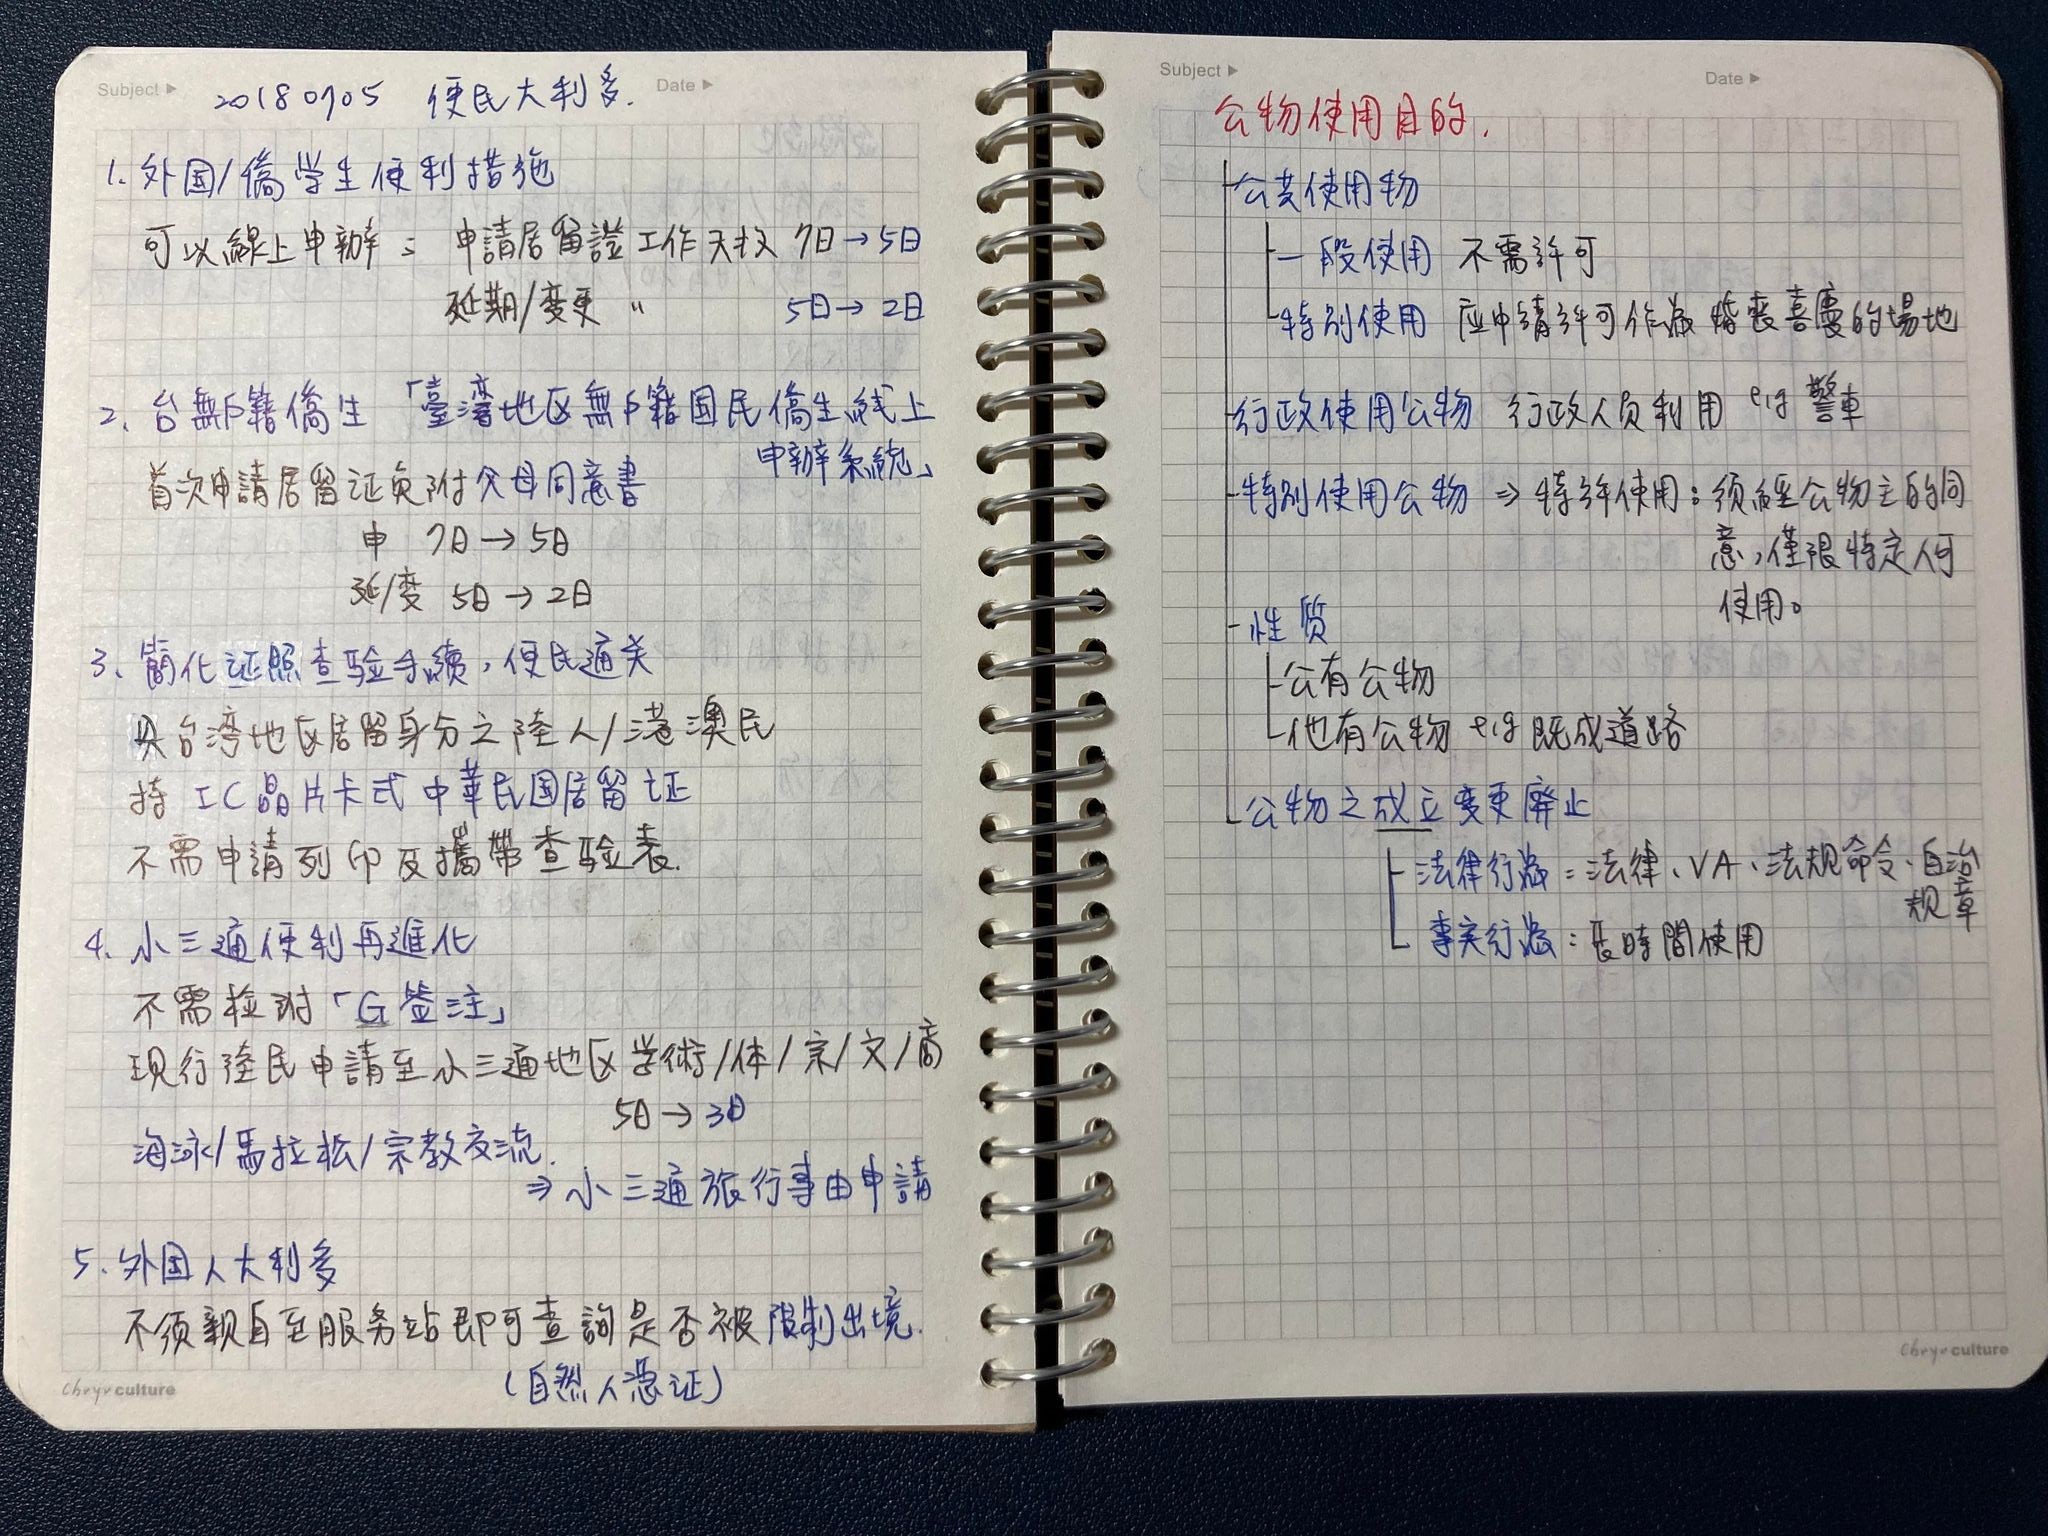 Subject ▶ Date ▶
20180705 便民大利多.
1. 外国/僑学生便利措施
可以線上申辦： 申請居留證工作天数 7日→5日
延期/变更 〃 5日→2日
2. 台無戶籍僑生 「臺湾地区無戶籍国民僑生线上
申辦系統」
首次申請居留证免附父母同意書
申 7日→5日
延/变 5日→2日
3. 簡化证照查验手續，便民通关
具台湾地区居留身分之陸人/港澳民
持 IC晶片卡式中華民国居留证
不需申請列印及攜帶查验表.
4. 小三通便利再進化
不需检附「G签注」
現行陸民申請至小三通地区学術/体/宗/文/商
5日→3日
海泳/馬拉松/宗教交流.
⇒小三通旅行事由申請
5. 外国人大利多
不须親自至服务站即可查詢是否被限制出境.
(自然人憑证)
Chryr culture
Subject ▶ Date ▶
公物使用目的.
公共使用物
一般使用 不需許可
特别使用 应申請許可作為婚丧喜慶的場地
行政使用公物 行政人员利用 e.g 警車
特别使用公物 ⇒ 特許使用：须經公物主的同
意，僅限特定人可
使用。
性质
公有公物
他有公物 e.g 既成道路
公物之成立变更廢止
法律行為：法律、VA、法規命令、自治
規章
事实行為：長時間使用
Chryr culture